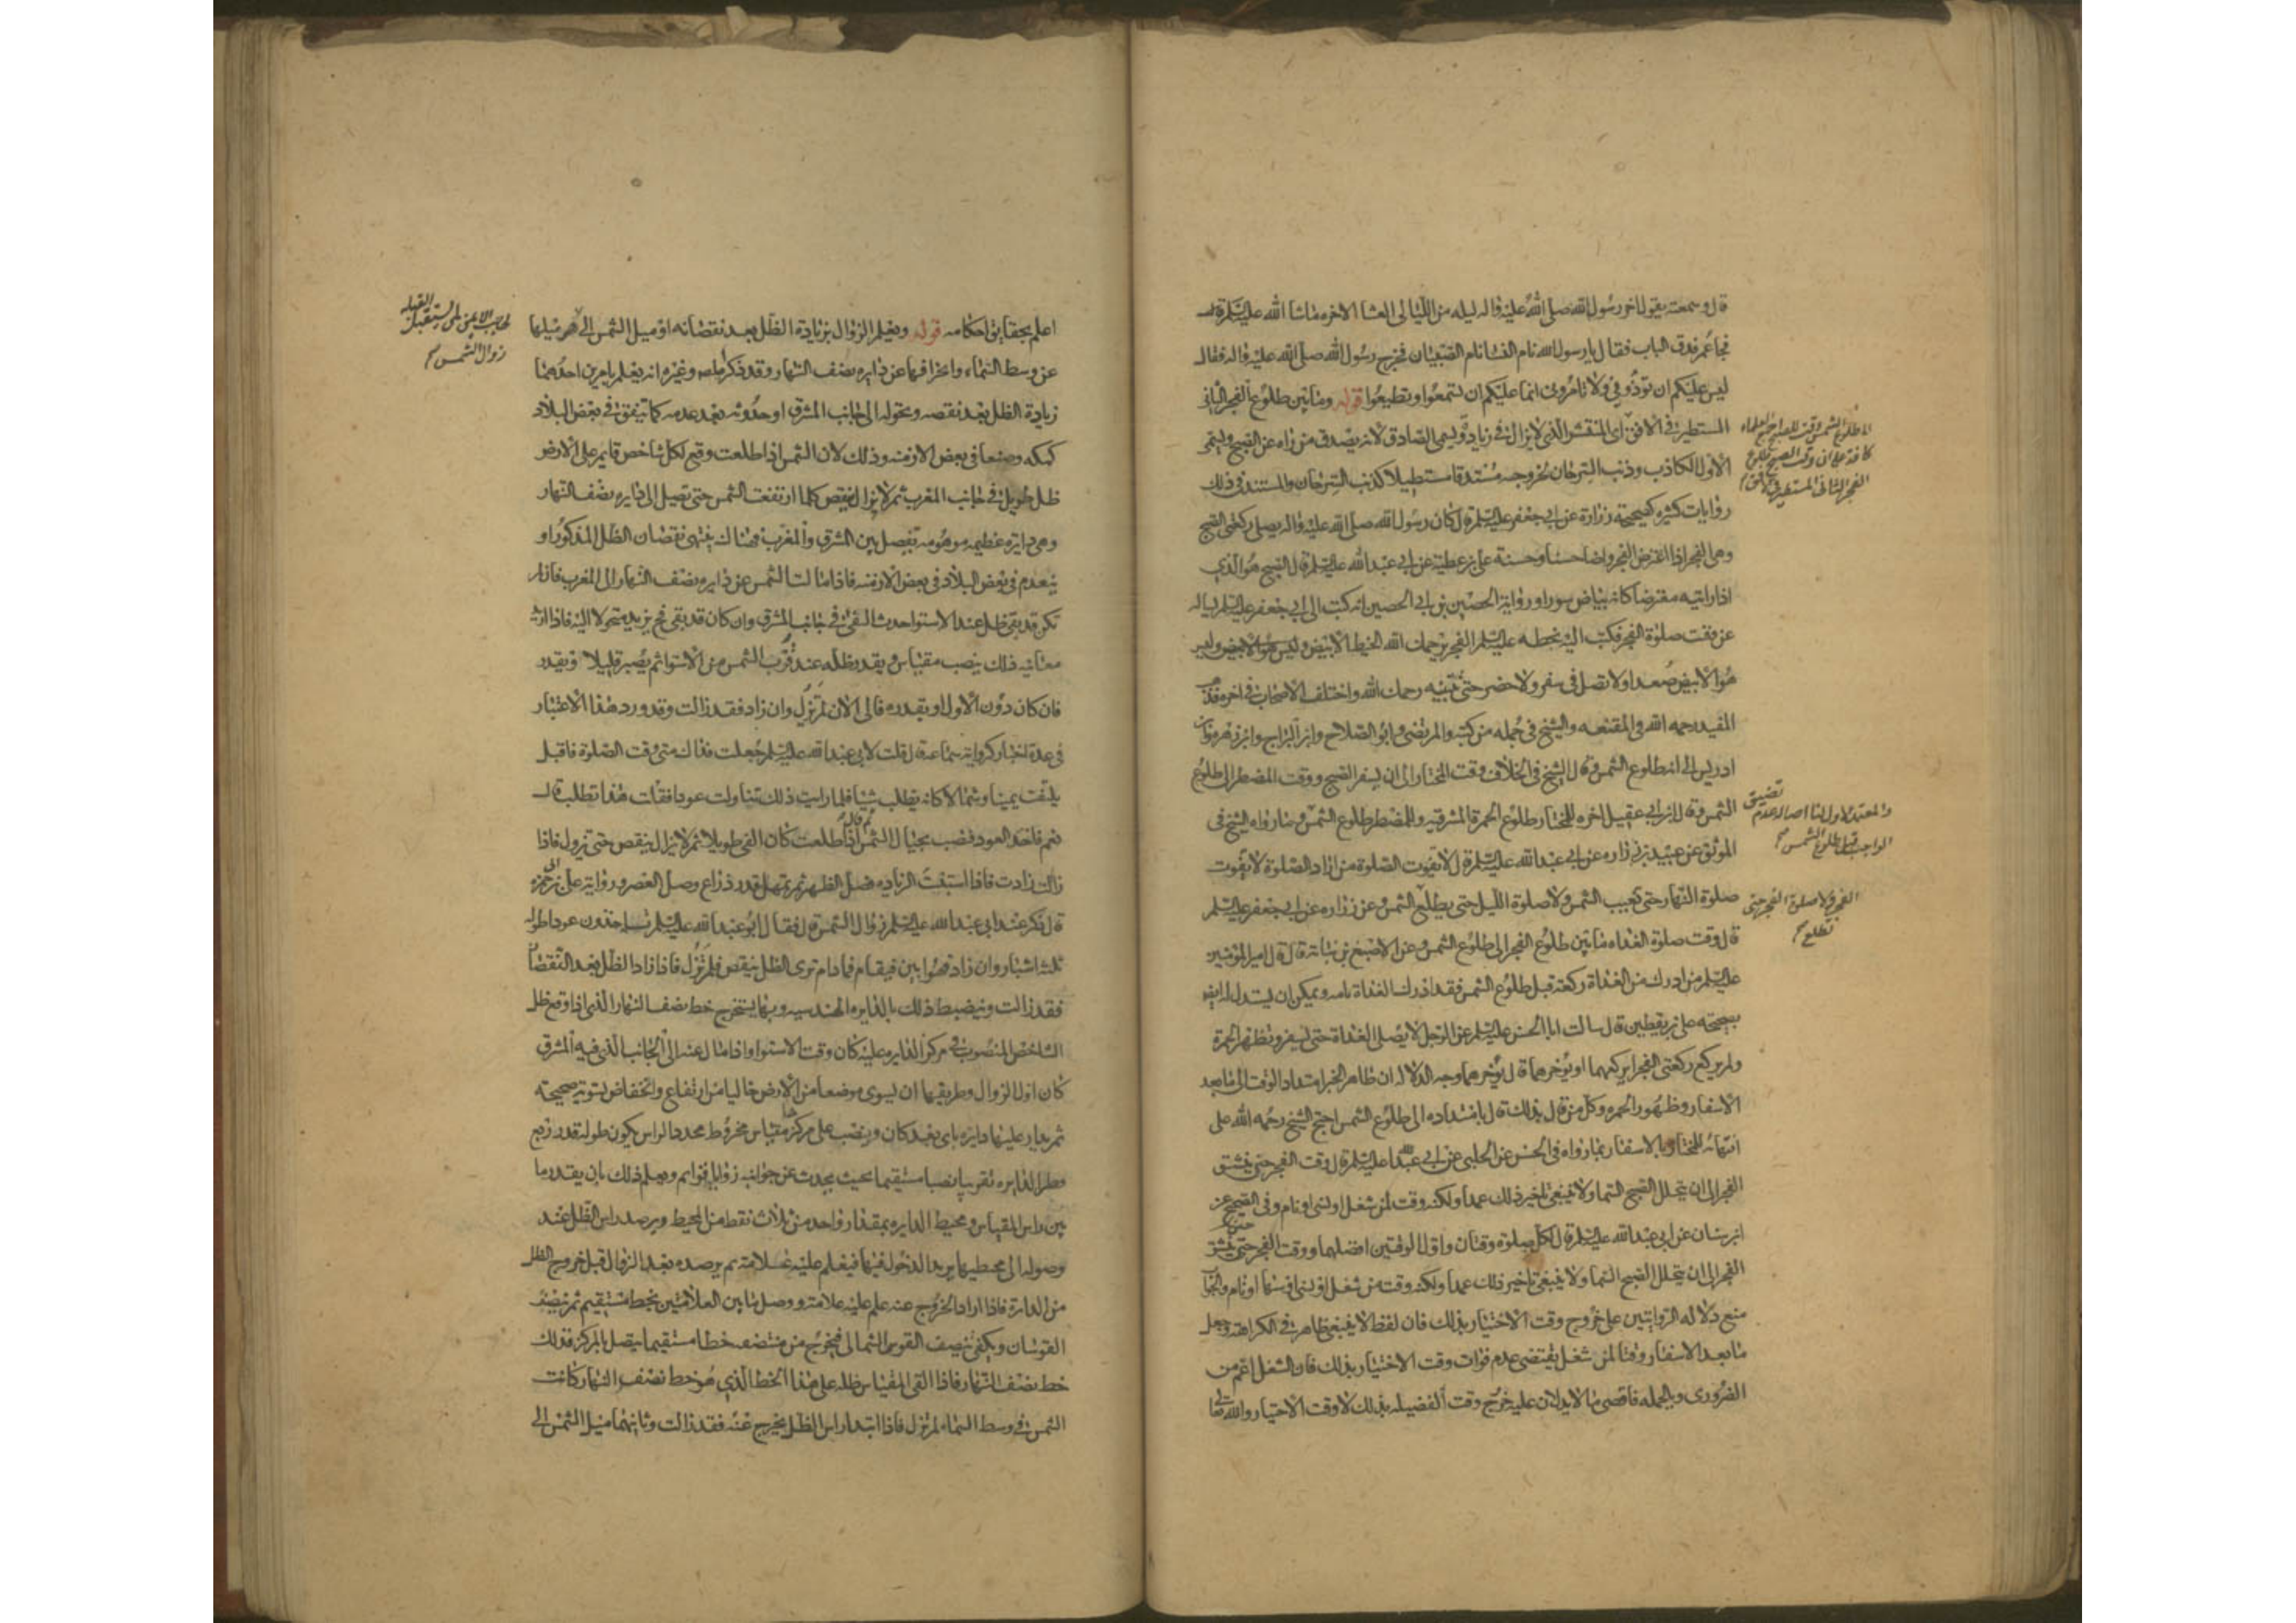 قال وسمعته يقول اخر رسول الله صلى الله عليه واله ليله من الليالى العشا الاخره ماشا الله عليه السلم
فجا عمر فدق الباب فقال يا رسول الله نام النسا نام الصبيان فخرج رسول الله صلى الله عليه واله فقال
ليس عليكم ان توذونى ولا تامرونى انما عليكم ان تسمعوا وتطيعوا قوله وما بين طلوع الفجر الثانى
المستطير فى الافق اى المنتشر الذى لا يزال فى زيادة ويسمى الصادق لانه يصدق من راه عن الصبح ويسمى
الاول الكاذب وذنب السرحان لخروجه مستدقا مستطيلا كذنب السرحان والمستند فى ذلك
روايات كثيره كصحيحة زرارة عن ابى جعفر عليه السلم قال كان رسول الله صلى الله عليه واله يصلى ركعتى الصبح
وهى الفجر اذا اعترض الفجر واضا حسنا وحسنة على بن عطية عن ابى عبد الله عليه السلم قال الصبح هو الذى
اذا رايته معترضا كانه بياض سورا ورواية الحصين بن ابى الحصين انه كتب الى ابى جعفر عليه السلم يساله
عن وقت صلوة الفجر فكتب اليه بخطه عليه السلم الفجر يرحمك الله الخيط الابيض وليس
هو الابيض صعدا ولا تصل فى سفر ولا حضر حتى تتبينه رحمك الله واختلف الاصحاب فى اخره فذهب
المفيد رحمه الله فى المقنعه والشيخ فى جمله من كتبه والمرتضى وابو الصلاح وابن البراج وابن زهره وابن
ادريس الى انه طلوع الشمس وقال الشيخ فى الخلاف وقت المختار الى ان يسفر الصبح ووقت المضطر الى طلوع
الشمس وقال ابن ابى عقيل اخره للمختار طلوع الحمرة المشرقيه وللمضطر طلوع الشمس وما رواه الشيخ فى
الموثق عن عبيد بن زراره عن ابى عبد الله عليه السلم قال لا تفوت الصلوة من اراد الصلوة لا تفوت
صلوة النهار حتى تغيب الشمس ولا صلوة الليل حتى يطلع الشمس وعن زراره عن ابى جعفر عليه السلم
قال وقت صلوة الغداه ما بين طلوع الفجر الى طلوع الشمس وعن الاصبغ بن نباتة قال قال امير المومنين
عليه السلم من ادرك من الغداة ركعة قبل طلوع الشمس فقد ادرك الغداة تامه ويمكن ان يستدل له ايضا
بصحيحه على بن يقطين قال سالت ابا الحسن عليه السلم عن الرجل لا يصلى الغداة حتى يسفر وتظهر الحمرة
ولم يركع ركعتى الفجر ايركعهما او يوخرهما قال يوخرهما وجه الدلاله ان ظاهر الخبر امتداد الوقت الى ما بعد
الاسفار وظهور الحمره وكل من قال بذلك قال بامتداده الى طلوع الشمس احتج الشيخ رحمه الله على
انتهائه للمختار بالاسفار بما رواه فى الحسن عن الحلبى عن ابى عبد الله عليه السلم قال وقت الفجر حين ينشق
الفجر الى ان يتجلل الصبح السما ولا ينبغى تاخير ذلك عمدا ولكنه وقت لمن شغل او نسى او نام وفى الصحيح عن
ابن سنان عن ابى عبد الله عليه السلم قال لكل صلوة وقتان واول الوقتين افضلهما ووقت الفجر حين ينشق
الفجر الى ان يتجلل الصبح السما ولا ينبغى تاخير ذلك عمدا ولكنه وقت من شغل او نسى او سها او نام والجواب
منع دلاله الروايتين على خروج وقت الاختيار بذلك فان لفظ لا ينبغى ظاهر فى الكراهة وجعل
ما بعد الاسفار وقتا لمن شغل يقتضى عدم فوات وقت الاختيار بذلك فان الشغل اعم من
الضرورى وبالجمله فاقصى ما لا يدلان عليه خروج وقت الفضيله بذلك لا وقت الاختيار والله تعالى
الى طلوع الشمس وقت للصبح اجمع العلماء
كافة على ان وقت الصبح طلوع
الفجر الثانى المستطير فى الافق
والمعتمد الاول لنا اصالة عدم تضيق
الواجب قبل طلوع الشمس
الفجر ولا صلوة الفجر حتى
تطلع
اعلم بحقايق احكامه قوله ويعلم الزوال بزيادة الظل بعد نقصانه او ميل الشمس الى
عن وسط السماء وانحرافها عن دايره نصف النهار وقد ذكر المص وغيره انه يعلم بامرين احدهما
زيادة الظل بعد نقصه وتحوله الى جانب المشرق او حدوثه بعد عدمه كما يتفق فى بعض البلاد
كمكه وصنعا فى بعض الازمنه وذلك لان الشمس اذا طلعت وقع لكل شاخص قايم على الارض
ظل طويل فى جانب المغرب ثم لا يزال ينقص كلما ارتفعت الشمس حتى تصل الى دايره نصف النهار
وهى دايره عظيمه موهومه تفصل بين المشرق والمغرب فهناك ينتهى نقصان الظل المذكور او
ينعدم فى بعض البلاد فى بعض الازمنه فاذا مالت الشمس عن دايره نصف النهار الى المغرب فان لم
تكن قد بقى ظل عند الاستوا حدث الفى فى جانب المشرق وان كان قد بقى فح يزيد متحولا اليه فاذا اريد
معاينه ذلك ينصب مقياس ويقدر ظله عند قرب الشمس من الاستوا ثم يصبر قليلا ويقدر
فان كان دون الاول او بقدره فالى الان لم تزل وان زاد فقد زالت وقد ورد هذا الاعتبار
فى عدة اخبار كرواية سماعة قال قلت لابى عبد الله عليه السلم جعلت فداك متى وقت الصلوة فاقبل
يلتفت يمينا وشمالا كانه يطلب شيئا فلما رايت ذلك تناولت عودا فقلت هذا تطلب قال
نعم فاخذ العود فنصب بحيال الشمس ثم قال اذا طلعت كان الفى طويلا ثم لا يزال ينقص حتى تزول فاذا
زالت زادت فاذا استبنت الزياده فصل الظهر ثم تمهل قدر ذراع وصل العصر ورواية على بن ابى حمزه
قال ذكر عند ابى عبد الله عليه السلم زوال الشمس قال فقال ابو عبد الله عليه السلم تاخذون عودا طوله
ثلثة اشبار وان زاد فهو ابين فيقام فما دام ترى الظل ينقص فلم تزل فاذا زاد الظل بعد النقصان
فقد زالت وينضبط ذلك بالدايره الهندسيه وبها يستخرج خط نصف النهار الذى اذا وقع ظل
الشاخص المنصوب فى مركز الدايره عليه كان وقت الاستوا واذا مال عنه الى الجانب الذى فيه المشرق
كان اول الزوال وطريقها ان يسوى موضعا من الارض خاليا من ارتفاع وانخفاض تسوية صحيحه
ثم يدار عليها دايره باى بعد كان وينصب على مركزها مقياس مخروط محدد الراس يكون طوله قدر ربع
قطر الدايره تقريبا نصبا مستقيما بحيث يحدث عن جوانبه زوايا قوايم ويعلم ذلك بان يقدر ما
بين راس المقياس ومحيط الدايره بمقدار واحد من ثلاث نقط من المحيط ويرصد راس الظل عند
وصوله الى محيطها يريد الدخول فيها فيعلم عليه علامة ثم يرصده بعد الزوال قبل خروج الظل
من الدارة فاذا اراد الخروج عنه علم عليه علامة ووصل ما بين العلامتين بخط مستقيم ثم ينصف
القوسان ويكفى تنصيف القوس الشمالى فيخرج من منتصفه خطا مستقيما يتصل بالمركز فذلك
خط نصف النهار فاذا القى المقياس ظله على هذا الخط الذى هو خط نصف النهار كانت
الشمس فى وسط السماء لم تزل فاذا ابتدا راس الظل يخرج عنه فقد زالت وثانيهما ميل الشمس الى
الحاجب الايمن لمن يستقبل القبله
زوال الشمس